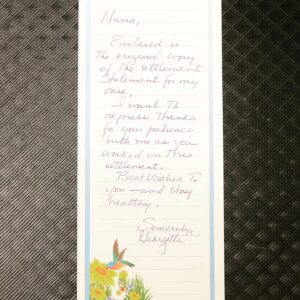 Hans,
Enclosed is
the original copy
of the settlement
Statement for my
case.
I want to
express thanks
for your patience
with me as you
worked on this
settlement.
Best Wishes to
you — and stay
healthy.
Sincerely,
Georgette